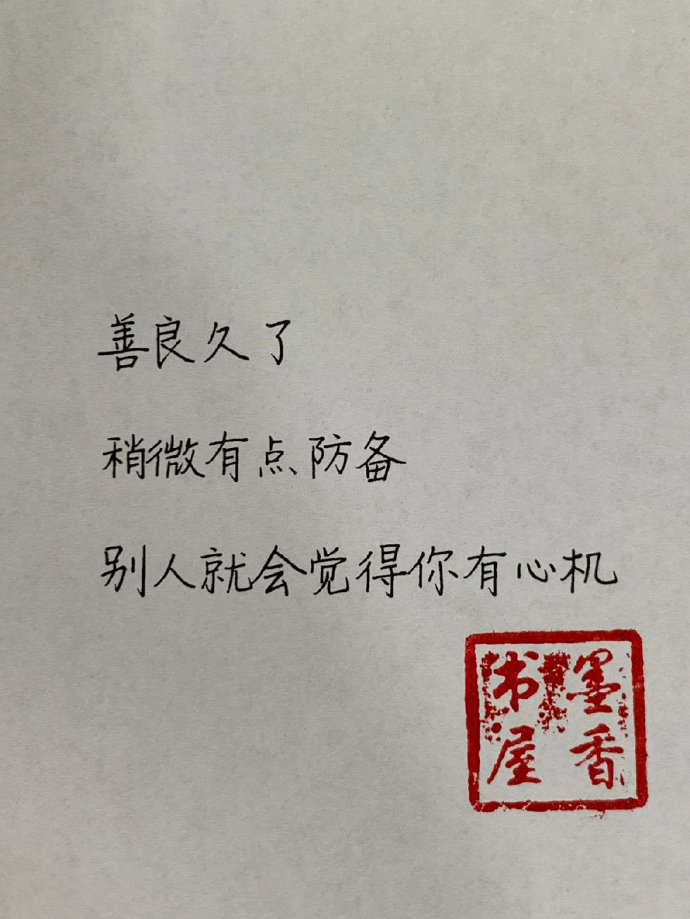 善良久了
稍微有点防备
别人就会觉得你有心机
墨香
书屋